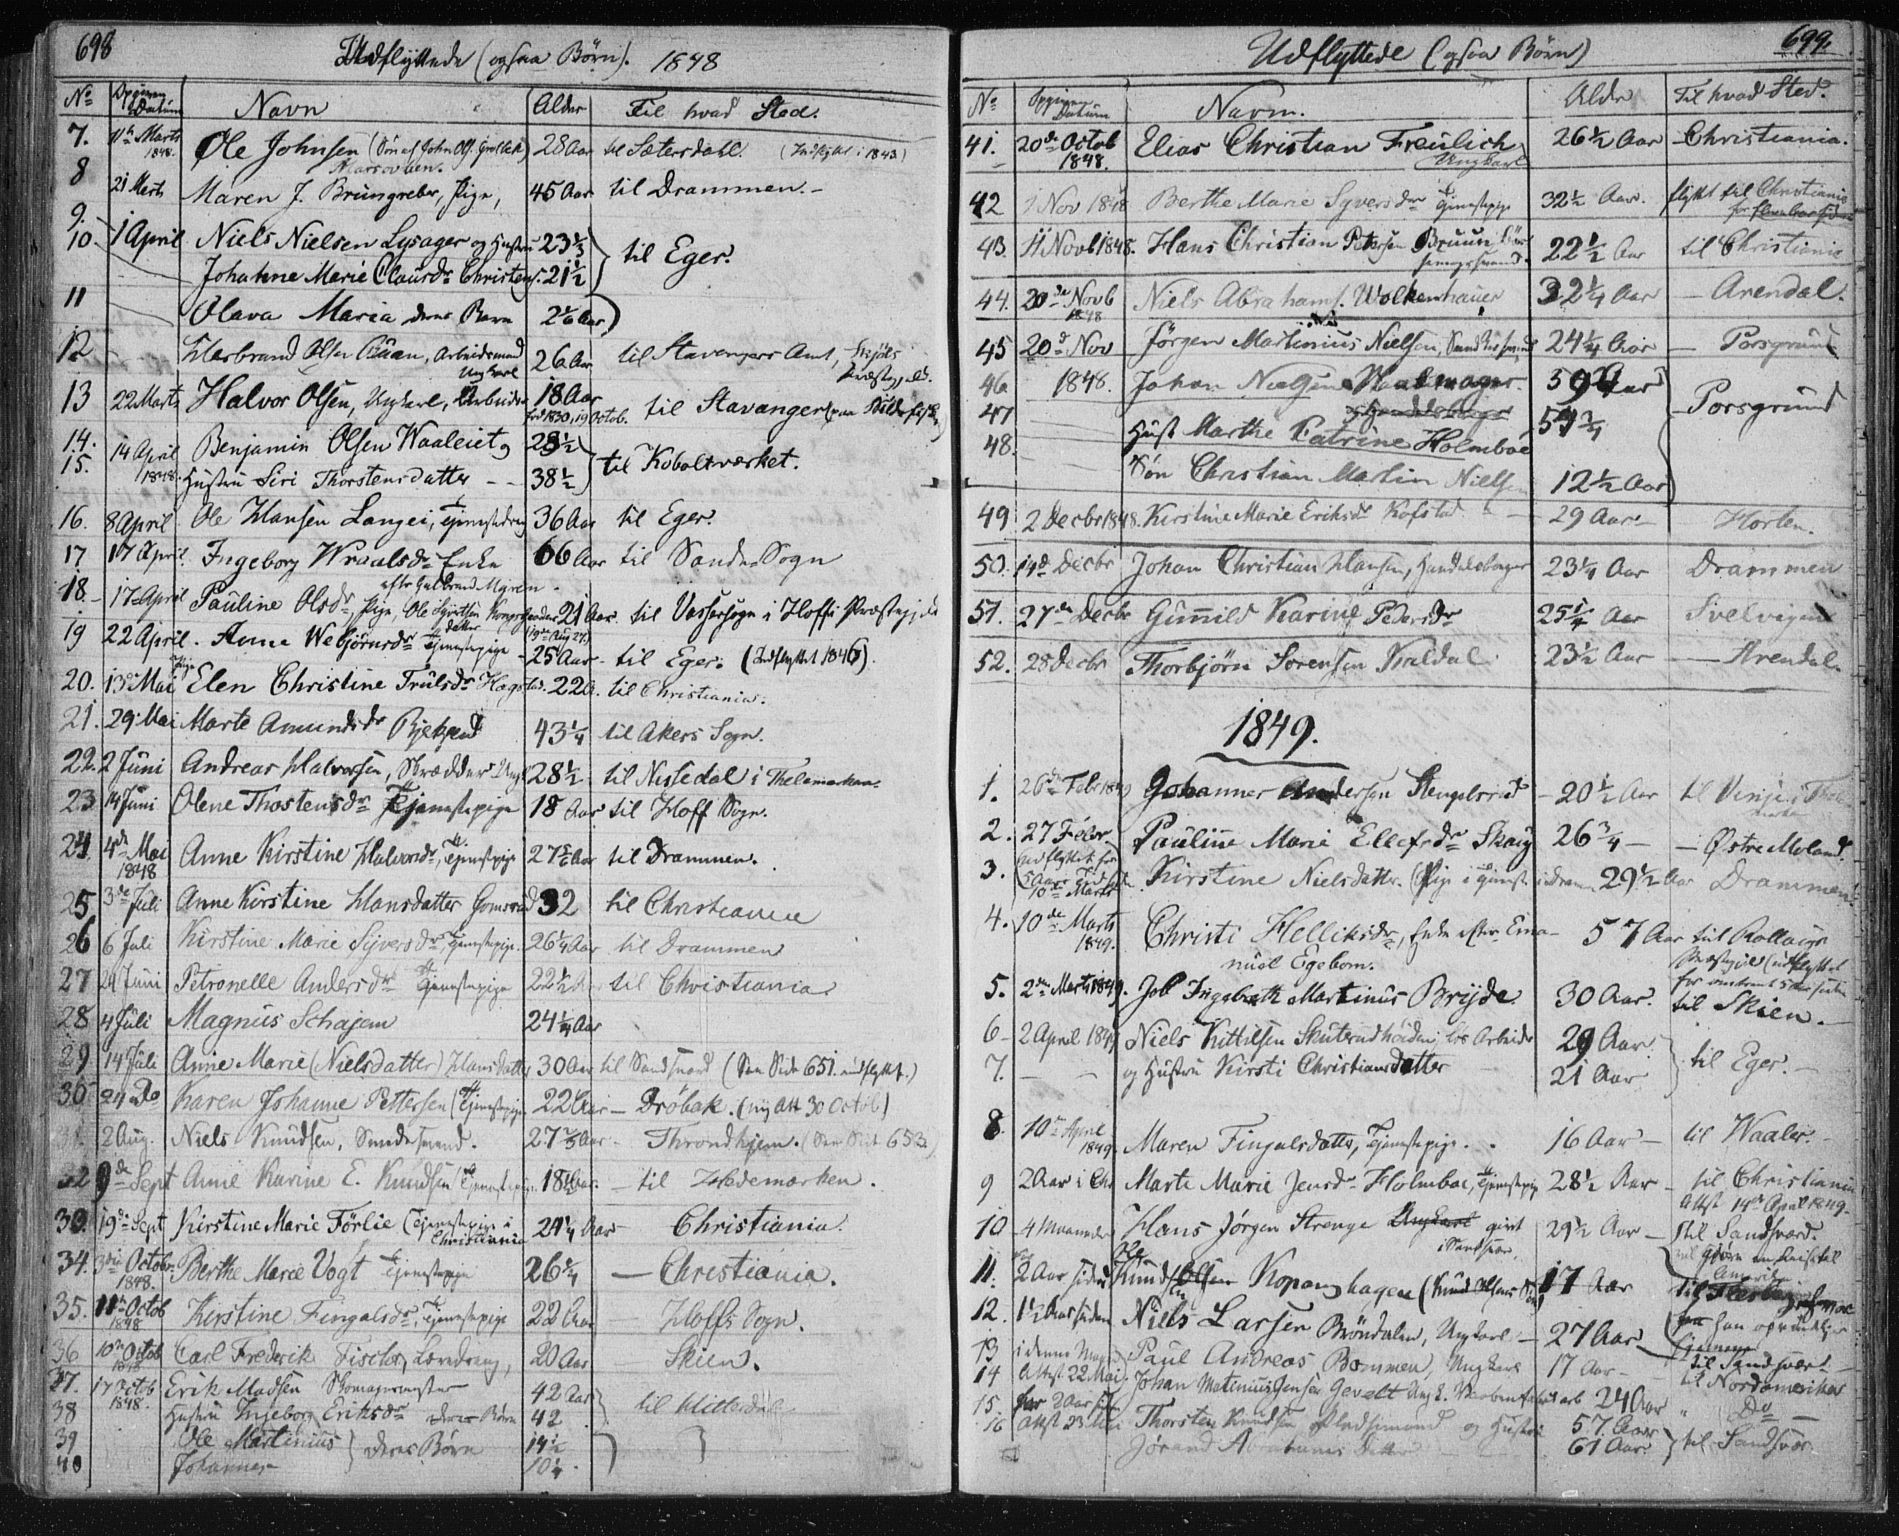 698
Udflyttede (ogsaa Børn). 1848
No Opgiven Datum Navn Alder Til hvad Sted.
7. 11te Marts 1848. Ole Johnsen (Søn af John Ols. 28 Aar til Sætersdahl. (Indflyttet i 1843)
8 21 Marts Maren J. Brungreber, Pige, 45 Aar til Drammen.-
9. 1 April Niels Nielsen Lysager og Hustru 23 1/3
10 Johanne Marie Clausdr Christens. 21 1/2 til Eger.
11 Olava Maria deres Barn 2 1/6 Aar
12 Herbrand Olsen Braan, Arbeidsmand Ungkarl 26 Aar til Stavangers Amt,
13 22 Marts Halvor Olsen, Ungkarl, Arbeider 18 Aar fød 1830, 19 Octob. til Stavanger (paa Sildefiske)
14. 14 April 1848. Benjamin Olsen Waaleiet og 28 1/2
15. Hustru Siri Thorstensdatter - - 38 1/2 til Koboltværket.
16. 8 April Ole Hansen Langei, Tjenestedreng 36 Aar til Eger.
17 17 April. Ingeborg Wraalsdr Enke 66 Aar til Sande Sogn
efter Gulbrand Myren.
18.- 17 April Pauline Olsdr, Pige, Ole datter 21 Aar til Vassessogn i Hoffs Præstegjeld
19 22 April. Anne Webjörnsdr Tjenestepige 25 Aar - til Eger. (Indflyttet 1846).
20. 13 Mai Pige Elen Christine Trulsdr Hagstad. 22 A. til Christiania.
21. 29 Mai Marte Amundsdr 43 1/4 til Akers Sogn.
22. 2 Juni Andreas Halvorsen, Skrædder Ungk 28 1/2 til Nissedal i Thelemarken.
23 14 Juni Olene Thostensdr Tjenestepige 18 Aar til Hoff Sogn.
24 4de Mai 1848 Anne Kirstine Halvorsdr, Tjenestepige 27 5/6 Aar til Drammen.
25 3de Juli Anne Kirstine Hansdatter Gomsrud 32 til Christiania
26 6 Juli Kirstine Marie Sijversdr Tjenestepige. 26 1/4 Aar til Drammen
27 24 Juni Petronelle Andersdr Tjenestepige 22 1/2 Aar til Christiania.
28 4 Juli Magnus Schajem 24 1/4 Aar
29 14 Juli Anne Marie (Nielsdatter) Hansdatter 30 Aar til Sandsværd (Sen Side 651. indflyttet.)
30 24 Do Karen Johanne Pettersen (Tjenestepige 22 Aar - Dröbak. (ny Att 30 Octob)
31. 2 Aug. Niels Knudsen, Smedesvend. 27 Aar - Throndhjem. (Sen Side 653.)
32 9de Sept Anne Karine E. Knudsen (Tjenestepige. 18 Aar. - til Hedemarken.
33. 19de Sept Kirstine Marie Förlie (Tjenestepige i Christiania 24 1/4 Aar Christiania.
34. 3die Octobr. 1848. Berthe Marie Vogt Tjenestepige 26 3/4 - Christiania.
35. 11te Octob 1848 Kirstine Fingalsdr, Tjenestepige 22 Aar - Hoffs Sogn.
36 10de Octob 1848 Carl Frederik Fischer, Læredreng, 20 Aar Skien.
37. 17 Octob 1848. Erik Madsen Skomagermester 42 Aar
38 Hustru Ingeborg Eriksdr deres Børn 42 til Hitterdal
39 Ole Martinius deres Børn 14 1/2
40 Johannes 10 1/4
699.
Udflyttede (ogsaa Børn)
No Opgiven Datum Navn. Alder Til hvad Sted.
41. 20de Octob 1848. Elias Christian Freulich Ungkarl 26 1/2 Aar - Christiania.
42 1 Nov 1848 Berthe Marie Syversdr Tjenestepige 32 1/2 Aar. flytt til Christiania for flere Aar siden
43. 11 Novb 1848. Hans Christian Petersen Bruun 22 1/2 Aar til Christiania
44. 20de Novb 1848 Niels Abrahams. Wolkenhauer 32 1/4 Aar - Arendal.
45 20de Nov Jørgen Martinius Nielsen, 24 1/4 Aar - Porsgrund
46 1848. Johan Nielsen 59 Aar
47 Hust Marthe Catrine Holmboe 54 3/4 - Porsgrund
48. Søn Christian Martin Nielsen 12 1/2 Aar
49 2 Decbr 1848. Kirstine Marie Eriksdr Kofstad - 29 Aar - Horten.
50. 14de Decbr Johan Christian Hansen, Handelsborger 23 1/4 Aar Drammen
51. 27de Decbr Gunnild Karine Pedersdr 25 1/4 Aar Svelvigen
52. 28 Decbr Thorbjörn Sorensen Kaldal 23 1/2 Aar - Arendal.
1849.
1. 26de Febr 1849 Johannes Andersen Stengelsrud - 20 1/2 Aar til Vinje i Thelemarken
2. 27 Febr. Pauline Marie Ellefsdr Skaug 26 3/4 - - Østre Moland.
3. (udflyttet for 5 Aar siden 10de Marts Kirstine Nielsdatter. (Pige i Tjenest. i Dramm 29 1/2 Aar Drammen.
4. 10de Marts 1849. Christi Helliksdr, Enke efter Ema- 57 Aar til Rollaugs
nuel Egebom. Præstegjeld (udflyttet
for omtrent 5 Aar siden
5. 2den Marts 1849. Job Ingebreth Martinus Brijde 30 Aar. til Skien.
6 - 2 April 1849 Niels Kittilsen Skuterudheiden, løs Arbeider 29 Aar.
7. - - og Hustru Kirsti Christiansdatter 21 Aar til Eger. -
8. 10de April 1849. Maren Fingalsdatter, Tjenestepige. 16 Aar - til Waaler.
9 2 Aar i Chr Marte Marie Jensdr Holmboe, Tjenestepige 28 1/2 Aar - til Christiania
Attst 14de April 1849.
10 - 4 Maaneder Hans Jörgen Strenge Ungkarl givt i Sandsvær. 29 1/2 Aar - til Sandsværd.
11. 2 Aar siden Knud Olsen Kopanghagen (Knud Olsens Søn) 17 Aar
12. 1 1/2 Aar siden Niels Larsen Bröndalen, Ungkarl - 27 Aar
13 i denne Paul Andreas Bommen, Ungkarl 17 Aar - til Sandsvært.
14 Attst 22 Mai. Johan Matinius Jensen Gevelt Ungk. 24 Aar til Nordamerika
15. for 2 Aar siden " Do -
16 Attst 23 Mai Thorsten Knudsen Pladsemand og Hustru 57 Aar
Jørand Abrahamsdatter 61 Aar. til Sandsvær